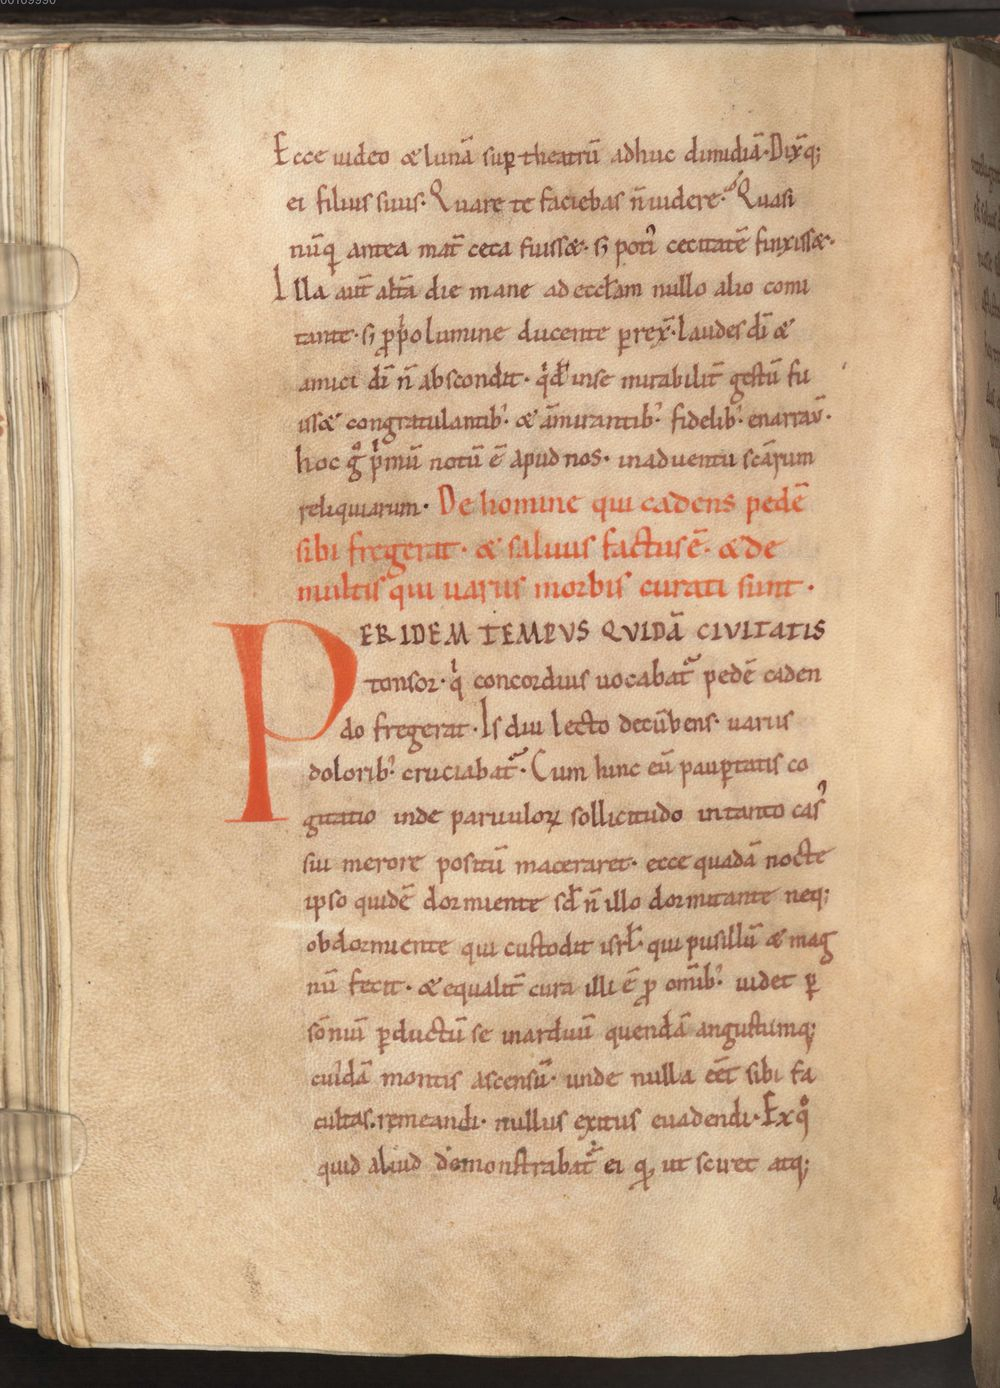 Ecce uideo & lunā sup̱ theatrū adhuc dimidiā· Dix̄q;
ei filius suus· Quare te faciebas n̄ uidere· Quasi
nūq̄ antea mat̄ ceca fuiss&· s; poti᾽ cecitatē finxiss&·
Illa aut̄ alt̄a die mane ad eccl̄am nullo alio comi
tante· s; p̱p̱o lumine ducente p̱rex̄· Laudes dī &
amici dī n̄ abscondit· qd̄ in se mirabilit̄ gestū fu
iss& congratulantib᾽· & āmirantib᾽· fidelib᾽· enarrav̄·
hoc gͦ p̍mū notū ē apud nos· in aduentu scārum
reliquiarum· De homine qui cadens pedē
sibi fregerat· & saluus factus ē· & de
multis qui uariis morbis curati sunt·
PER IDEM TEMPVS QVIDĀ CIVITATIS
tonsor· q̍ concordius uocabat᷑ pedē caden
do fregerat· Is diu lecto decūbens· uariis
dolorib᾽· cruciabat᷑· Cum hinc eū paup̱tatis co
gitatio inde paruuloꝝ sollicitudo in tanto cas᾽
sui merore positū maceraret· ecce quadā nocte
ipso quidē dormiente sd̄ n̄ illo dormitante neq;
obdormiente qui custodit isrl̄· qui pusillū & mag
nū fecit· & equalit̄ cura illi ē p̱ omīb᾽· uidet p̱
sōniū p̱ductū se in arduū quendā angustumq;
cuidā montis ascensū· unde nulla eēt sibi fa
cultas remeandi· nullus exitus euadendi· Ex qͦ
quid aliud demonstrabat᷑ ei q̱̄ ut sciret atq;